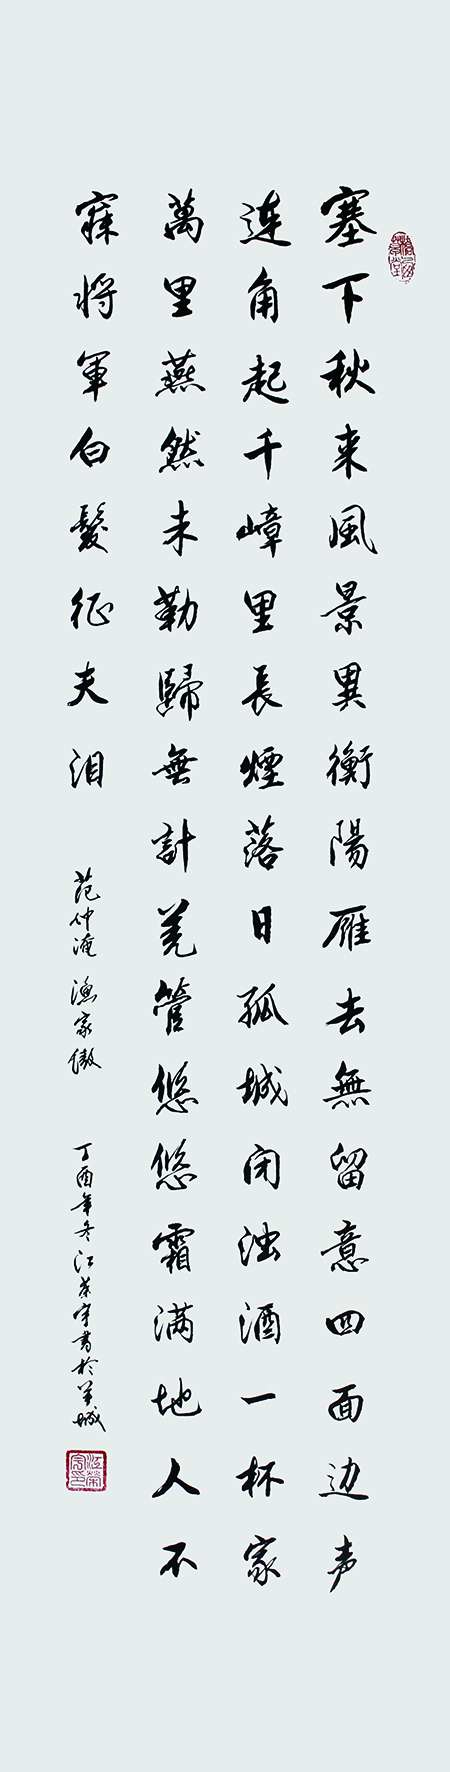 塞下秋来風景異衡陽雁去無留意四面边声
連角起千嶂里長煙落日孤城闭浊酒一杯家
萬里燕然未勒歸無計羌管悠悠霜满地人不
寐将軍白髮征夫泪
范仲淹 渔家傲
丁酉年冬江荣宇書於羊城